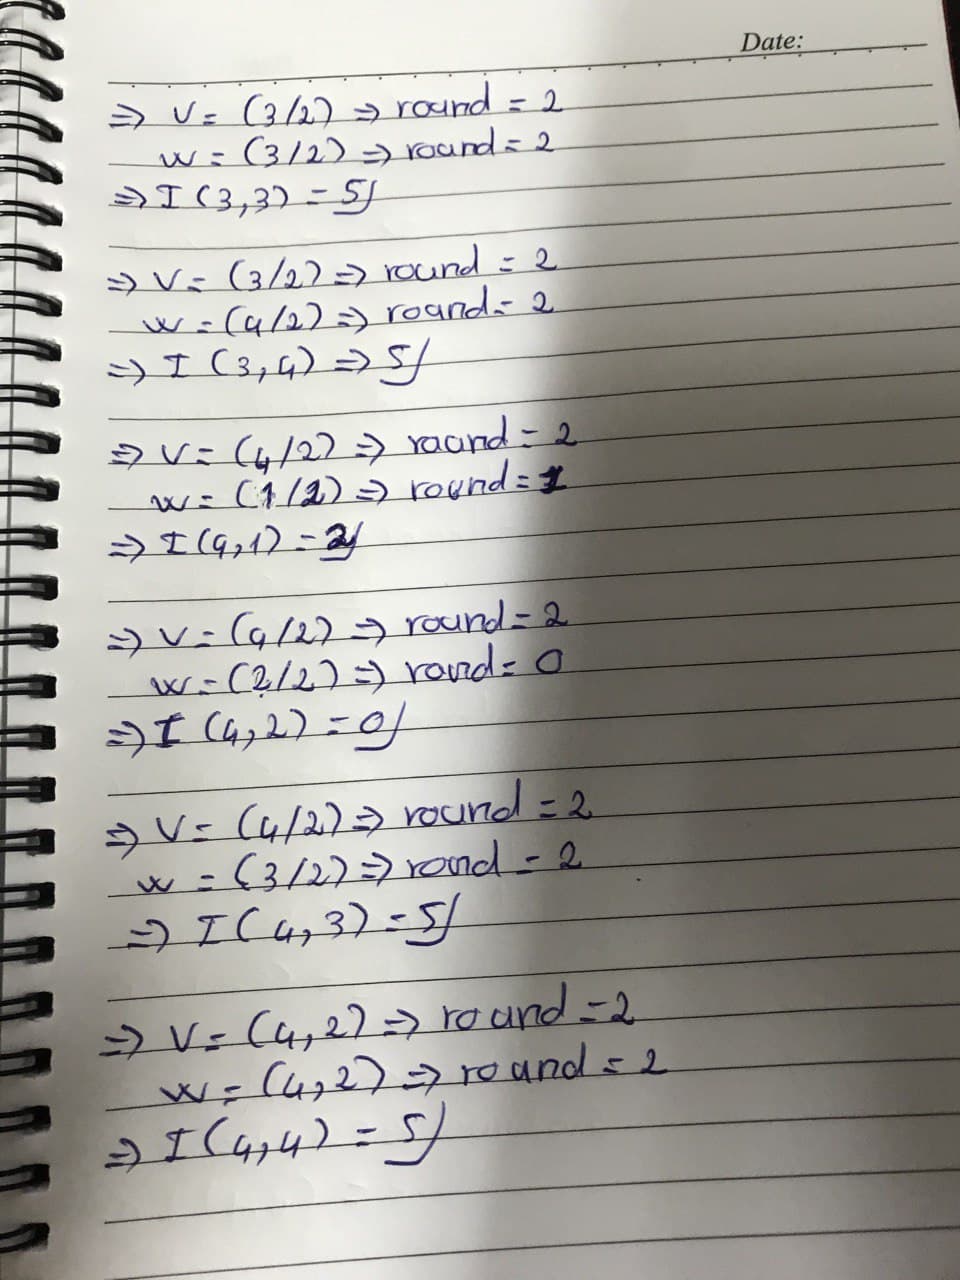 Date:
⇒ V = (3/2) ⇒ round = 2
w = (3/2) ⇒ round = 2
⇒ I (3,3) = 5
⇒ V = (3/2) ⇒ round = 2
w = (4/2) ⇒ round = 2
⇒ I (3,4) ⇒ 5
⇒ V = (4/2) ⇒ raand = 2
w = (1/2) ⇒ round = 1
⇒ I (4,1) = 2
⇒ V = (4/2) ⇒ round = 2
w = (2/2) ⇒ round = 0
⇒ I (4,2) = 0
⇒ V = (4/2) ⇒ round = 2
w = (3/2) ⇒ round = 2
⇒ I (4,3) = 5
⇒ V = (4,2) ⇒ round = 2
w = (4,2) ⇒ round = 2
⇒ I (4,4) = 5